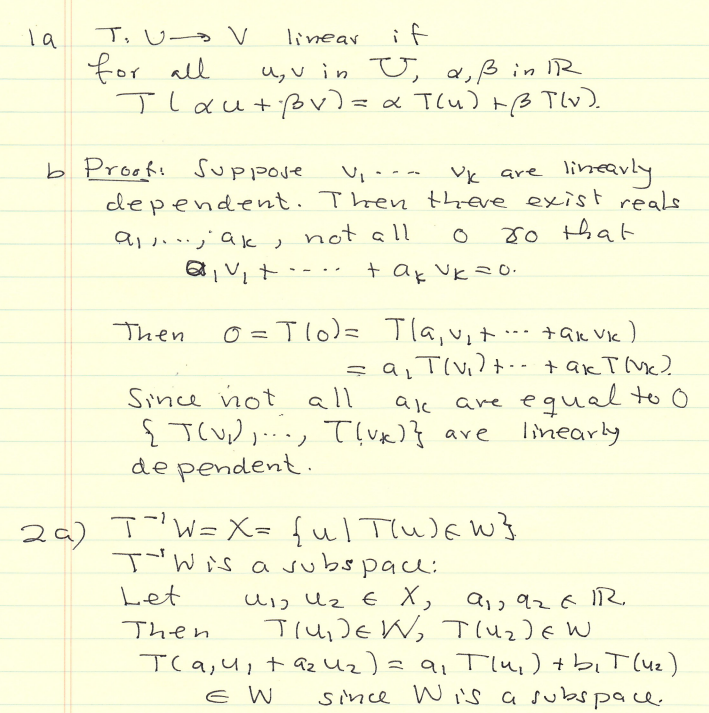 1a T: U → V linear if
for all u, v in U, α, β in ℝ
T(αu + βv) = α T(u) + β T(v).
b Proof: Suppose v₁ ---- vₖ are linearly
dependent. Then there exist reals
a₁, ..., aₖ, not all 0 so that
a₁v₁ + ----- + aₖvₖ = 0.
Then 0 = T(0) = T(a₁v₁ + ... + aₖvₖ)
= a₁T(v₁) + ... + aₖT(vₖ).
Since not all aₖ are equal to 0
{T(v₁), ..., T(vₖ)} are linearly
dependent.
2a) T⁻¹W = X = {u | T(u) ∈ W}
T⁻¹W is a subspace:
Let u₁, u₂ ∈ X, a₁, a₂ ∈ ℝ.
Then T(u₁) ∈ W, T(u₂) ∈ W
T(a₁u₁ + a₂u₂) = a₁T(u₁) + b₁T(u₂)
∈ W since W is a subspace.